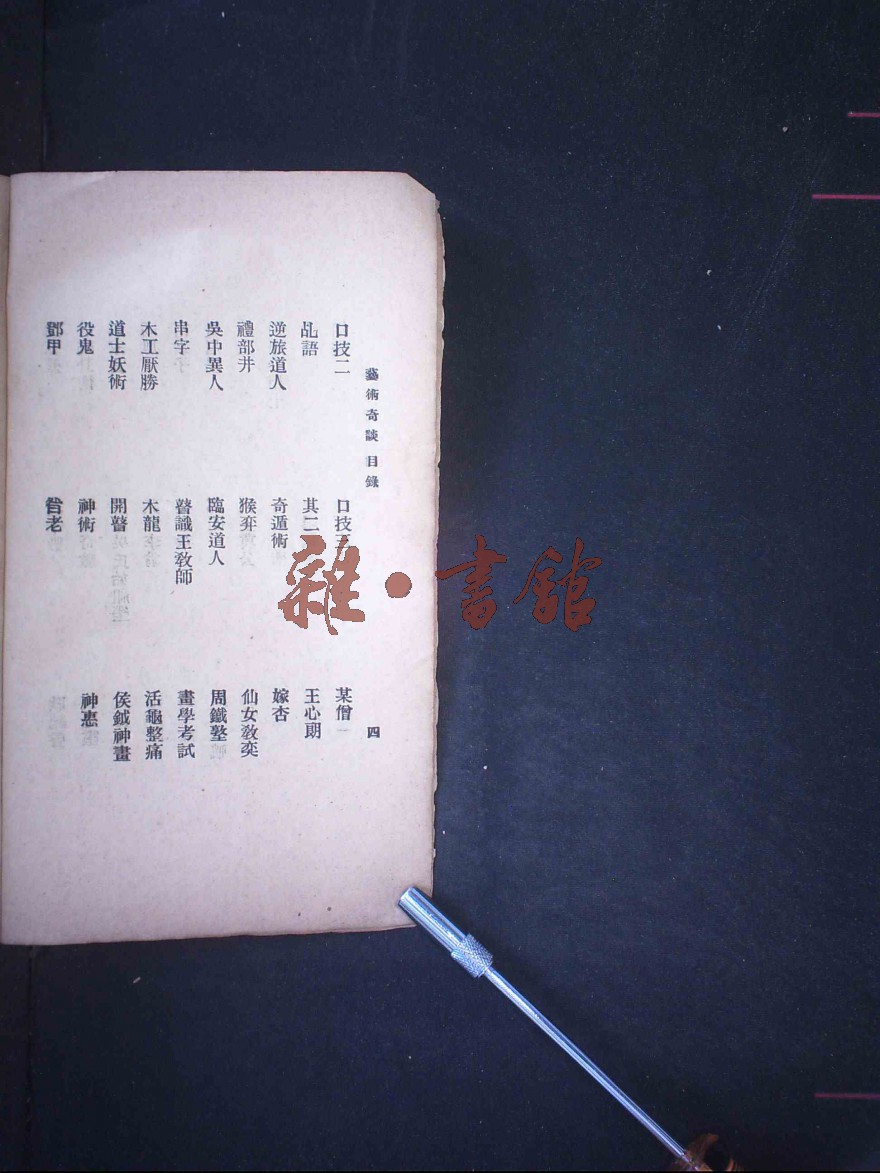 藝術奇談 目錄 四
口技二 口技三 某僧
乩語 其二 王心朗
逆旅道人 奇遁術 嫁杏
禮部井 猴弈 仙女教奕
吳中異人 臨安道人 周鐵墼
串字 瞽識王教師 畫學考試
木工厭勝 木龍 活龜整痛
道士妖術 開瞽 侯鉞神畫
役鬼 神術 神惷
鄧甲 昝老
雜·書館